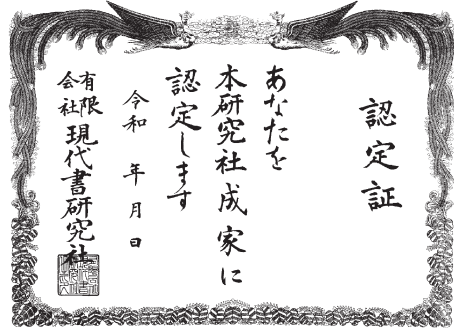 認定証
あなたを
本研究社成家に
認定します
令和　年　月　日
有限会社 現代書研究社